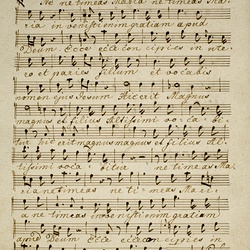 Ne ne timeas Maria ne timeas Ma-
ria invenisti enim gratiam apud
Deum Ecce ecce concipies in ute-
ro et paries filium et vocabis
nomen ejus Jesum Hic erit Magnus
magnus et filius Altissimi vocabi-
tur hic erit magnus magnus et filius Al-
tissimi voca- bitur ne timeas Ma-
ria ne timeas ne ti- meas Mari-
a ne timeas invenisti enim gratiam
apud Deum Ecce ecce concipies in